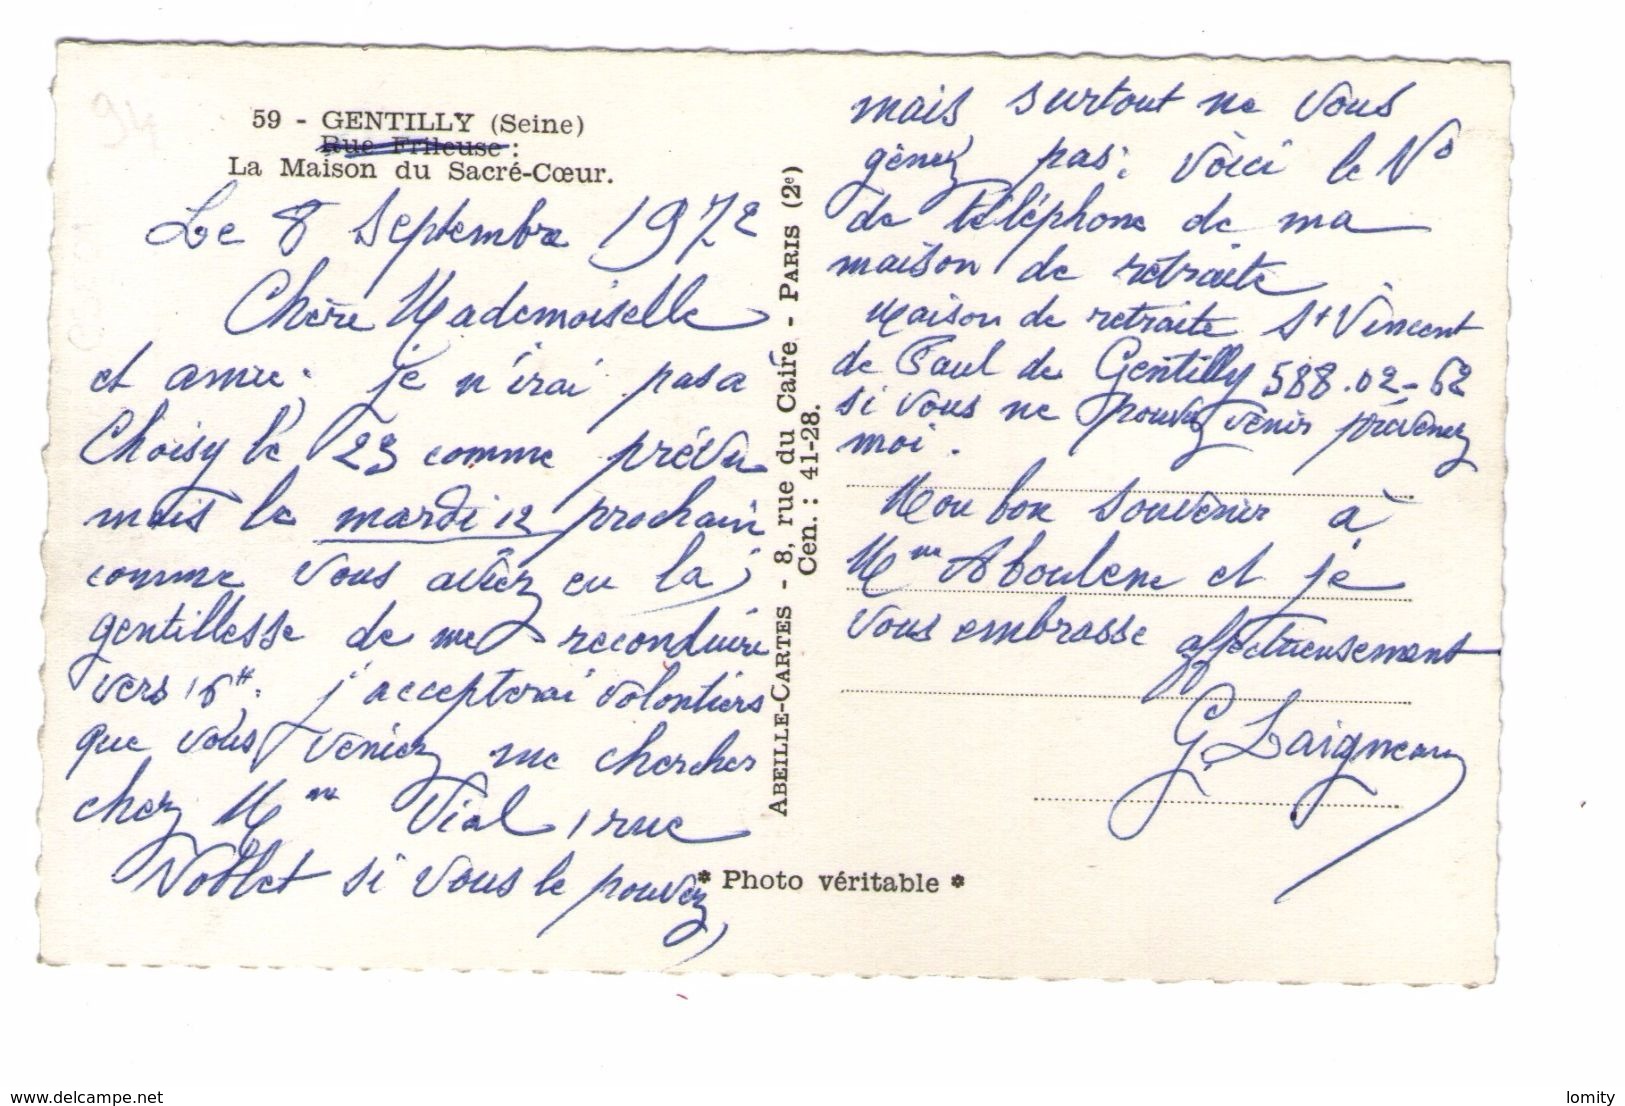 94
59 - GENTILLY (Seine)
Rue Frileuse :
La Maison du Sacré-Cœur.
Le 8 Septembre 1972
Chère Mademoiselle
et amie. je n'irai pas à
Choisy le 23 comme prévu
mais le mardi 12 prochain
comme vous aviez eu la
gentillesse de me reconduire
vers 16H. j'accepterai volontiers
que vous veniez me chercher
chez Mme Vial 1 rue
Noblet si vous le pouvez,
ABEILLE-CARTES - 8, rue du Caire - PARIS (2e)
Cen. : 41-28.
mais surtout ne vous
gênez pas. Voici le No
de téléphone de ma
maison de retraite
Maison de retraite St Vincent
de Paul de Gentilly 588.02-62
si vous ne pouvez venir prévenez
moi.
Mon bon souvenir à
Mme Aboulene et je
vous embrasse affectueusement
G. Laigneau
* Photo véritable *
www.delcampe.net
lomity